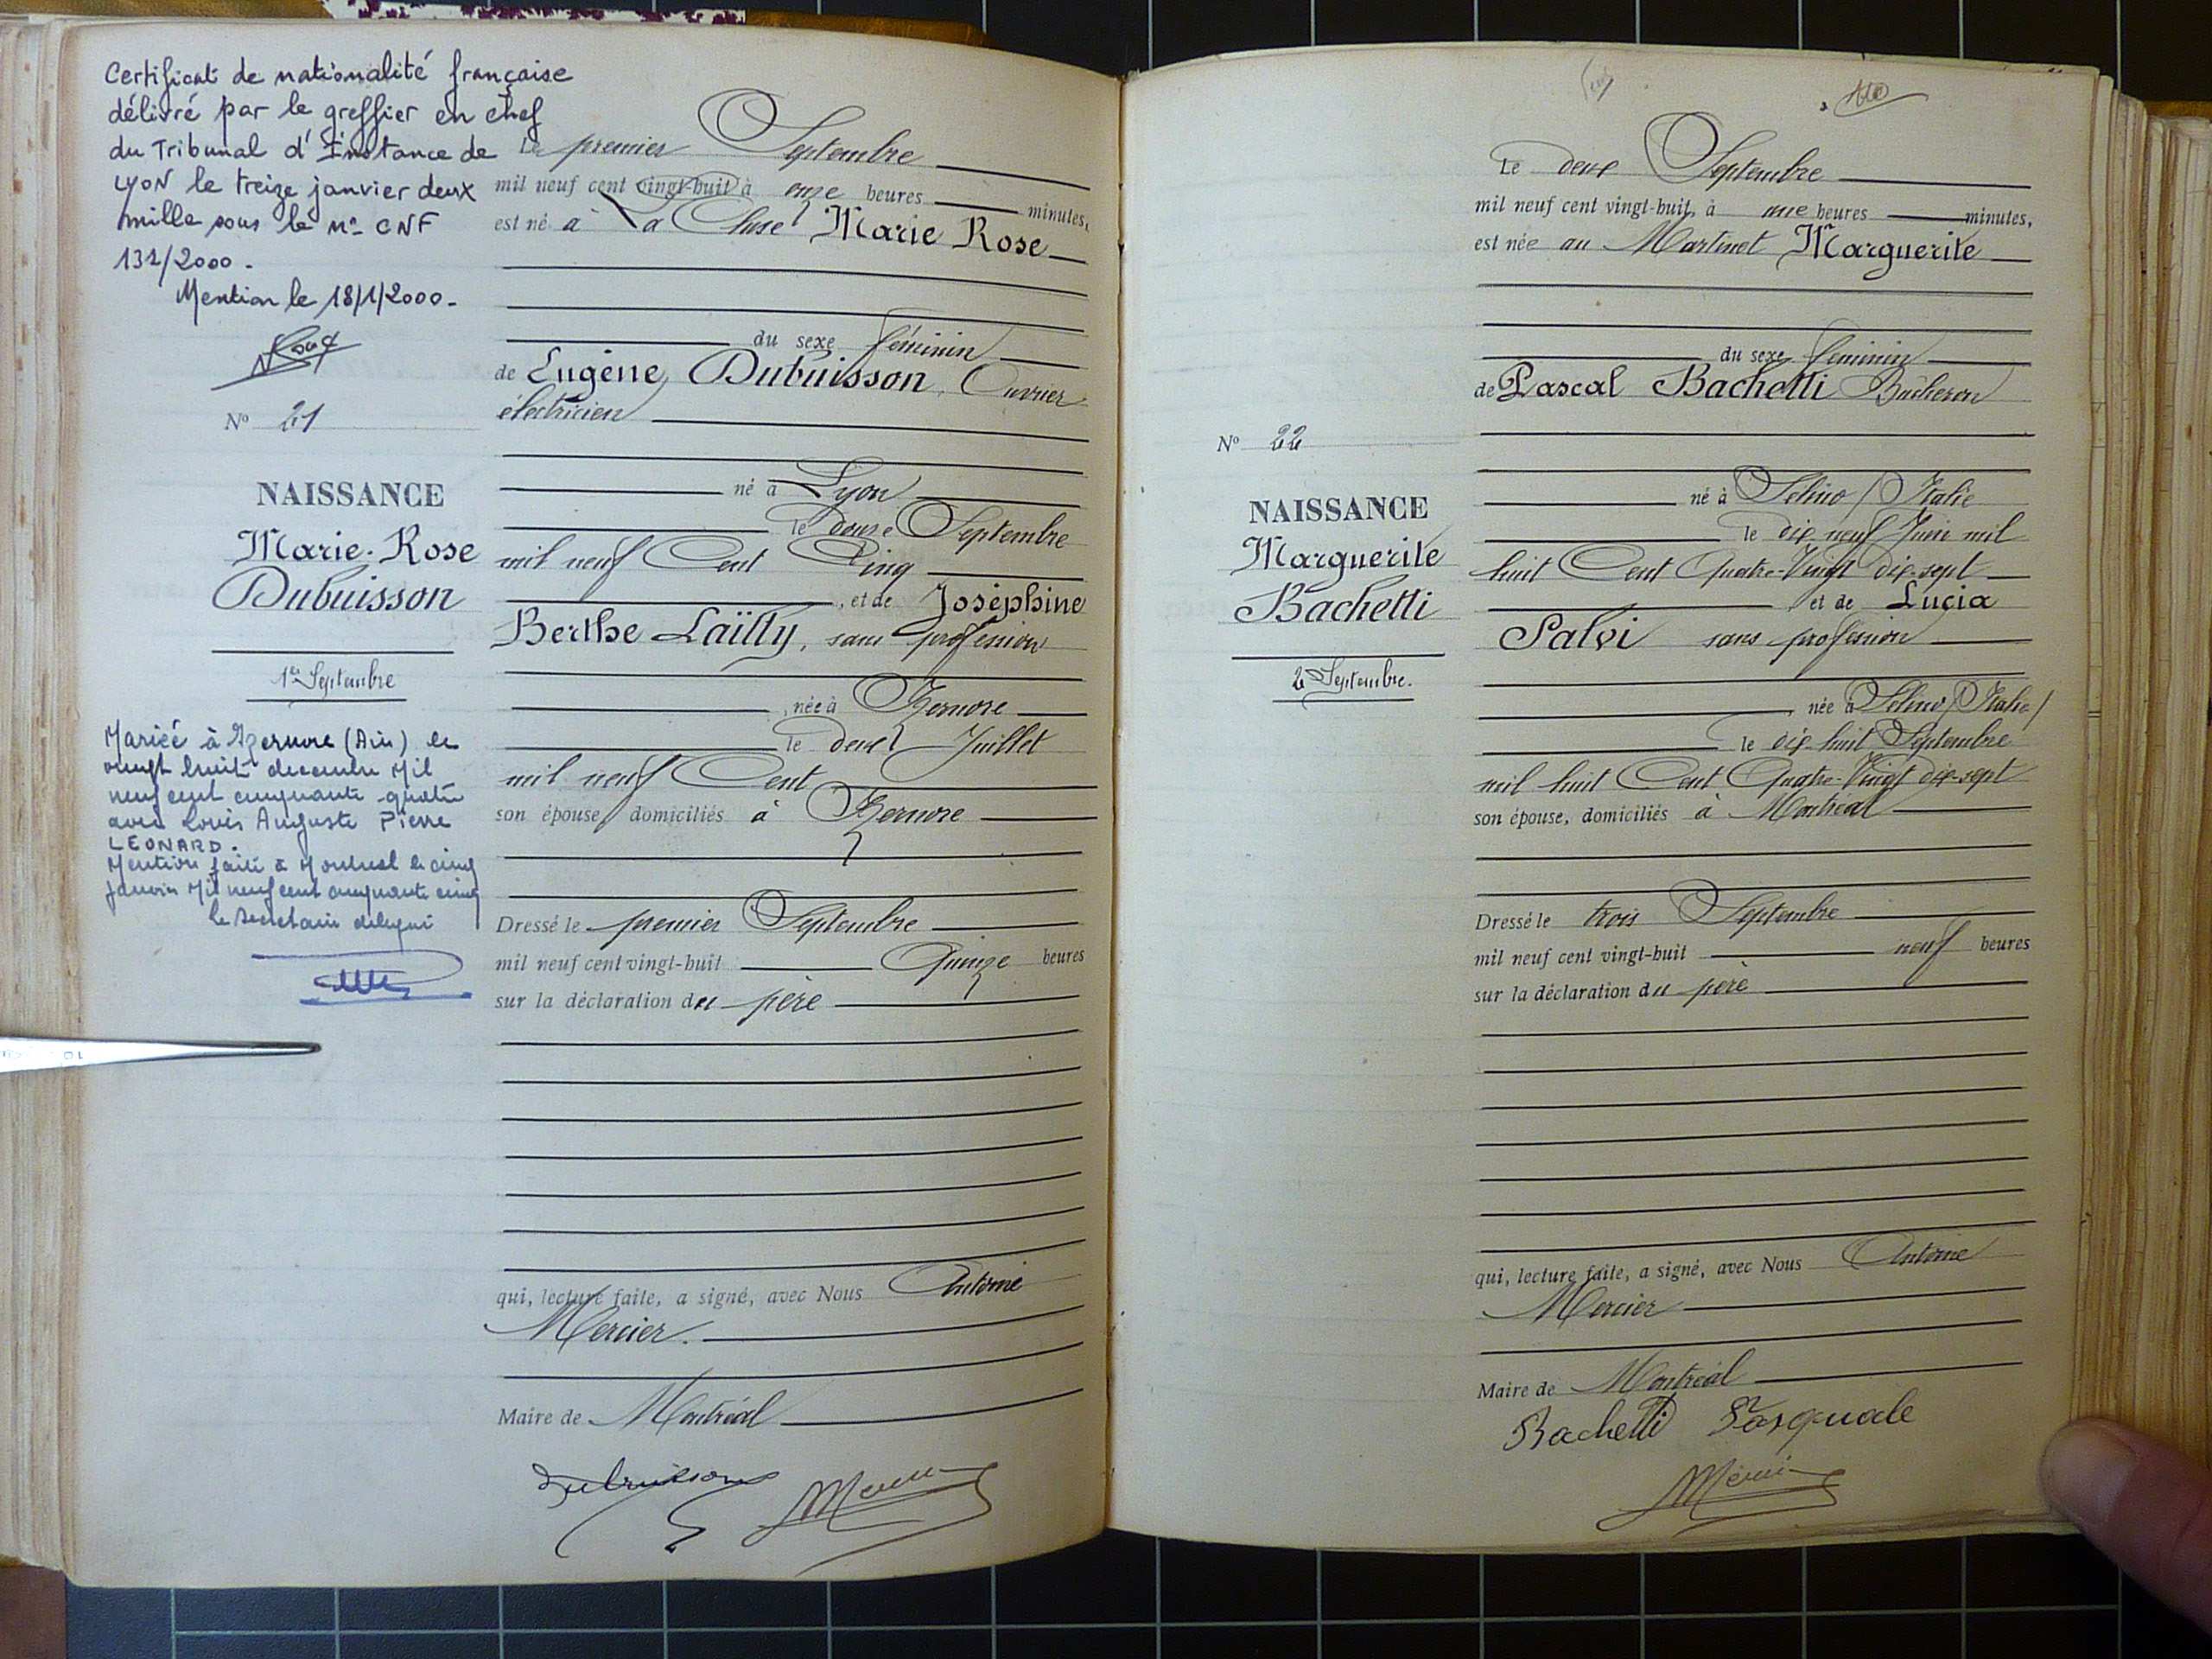 Certificat de nationalité française
délivré par le greffier en chef
du Tribunal d'Instance de
LYON le treize janvier deux
mille sous le n° CNF
131/2000.
Mention le 18/1/2000.
N° 21
NAISSANCE
Marie-Rose
Dubuisson
1er Septembre
Mariée à Izernore (Ain) le
vingt huit decembre Mil
neuf cent cinquante quatre
avec Louis Auguste Pierre
LEONARD.
Mention faite à Montreal le cinq
janvier Mil neuf cent cinquante cinq
le Secretaire délégué
Le premier Septembre
mil neuf cent vingt-huit à onze heures minutes,
est né à La Cluse Marie Rose
du sexe féminin
de Eugène Dubuisson, Ouvrier
électricien
né à Lyon
le douze Septembre
mil neuf Cent Cinq
, et de Joséphine
Berthe Laïlly, sans profession
, née à Izernore
le deux Juillet
mil neuf Cent
son épouse domiciliés à Izernore
Dressé le premier Septembre
mil neuf cent vingt-huit Quinze heures
sur la déclaration du père
qui, lecture faite, a signé, avec Nous Antoine
Mercier.
Maire de Montréal
Dubuisson
Le deux Septembre
mil neuf cent vingt-huit, à une heures minutes,
est née au Martinet Marguerite
du sexe féminin
de Pascal Bachetti Bûcheron
N° 22
NAISSANCE
Marguerite
Bachetti
2 Septembre.
né à Selino (Italie
le dix neuf Juin mil
huit Cent Quatre-Vingt dix-sept
, et de Lucia
Salvi sans profession
, née à Selino (Italie)
le dix huit Septembre
mil huit Cent Quatre-Vingt dix-sept
son épouse, domiciliés à Montréal
Dressé le trois Septembre
mil neuf cent vingt-huit neuf heures
sur la déclaration du père
qui, lecture faite, a signé, avec Nous Antoine
Mercier
Maire de Montréal
Bachetti Pasquale